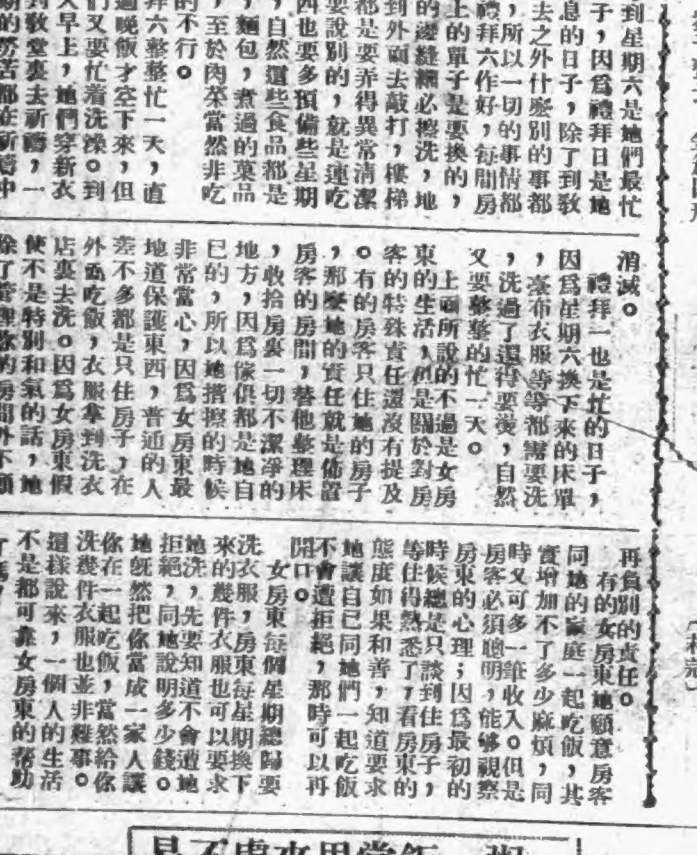 到星期六是她們最忙
子,因爲禮拜日是她
息的日子,除了到教
去之外什麼別的事都
,所以一切的事情都
禮拜六作好,每間房
上的單子是要換的,
的邊縫網必擦洗,地
到外面去敲打,樓梯
都是要弄得異常清潔
要說別的,就是連吃
四也要多預備些星期
,自然這些食品都是
,麵包,煮過的菓品
,至於肉菜當然非吃
的不行。
拜六整整忙一天,直
過晚飯才空下來,但
們又要忙着洗澡。到
天早上,她們穿新衣
到敎堂裏去祈禱,一
期的勞苦都在祈禱中
消滅。
禮拜一也是忙的日子,
因爲星期六換下來的床單
,臺布衣服等等都需要洗
,洗過了還得要燙,自然
又要整整的忙一天。
上面所說的不過是女房
東的生活,但是關於對房
客的特殊責任還沒有提及
。有的房客只住她的房子
,那麼她的責任就是佈置
房客的房間,替他整理床
,收拾房裏一切不潔淨的
地方,因爲傢俱都是她自
已的,所以她揩擦的時候
非常當心,因爲女房東最
地道保護東西,普通的人
差不多都是只住房子,在
外面吃飯,衣服拿到洗衣
店裏去洗。因爲女房東假
使不是特別和氣的話,她
除了管理你的房間外不願
再負別的責任。
有的女房東她願意房客
同她的家庭一起吃飯,其
實增加不了多少麻煩,同
時又可多一筆收入。但是
房客必須聰明,能够視察
房東的心理;因爲最初的
時候總是只談到住房子,
等住得熟悉了,看房東的
態度如果和善,知道要求
她讓自已同她們一起吃飯
不會遭拒絕,那時可以再
開口。
女房東每個星期總歸要
洗衣服,房東每星期換下
來的幾件衣服也可以要求
她洗,先要知道不會遭她
拒絕,同她說明多少錢。
她旣然把你當成一家人讓
你在一起吃飯,當然給你
洗幾件衣服也並非難事。
這樣說來,一個人的生活
不是都可靠女房東的幫助